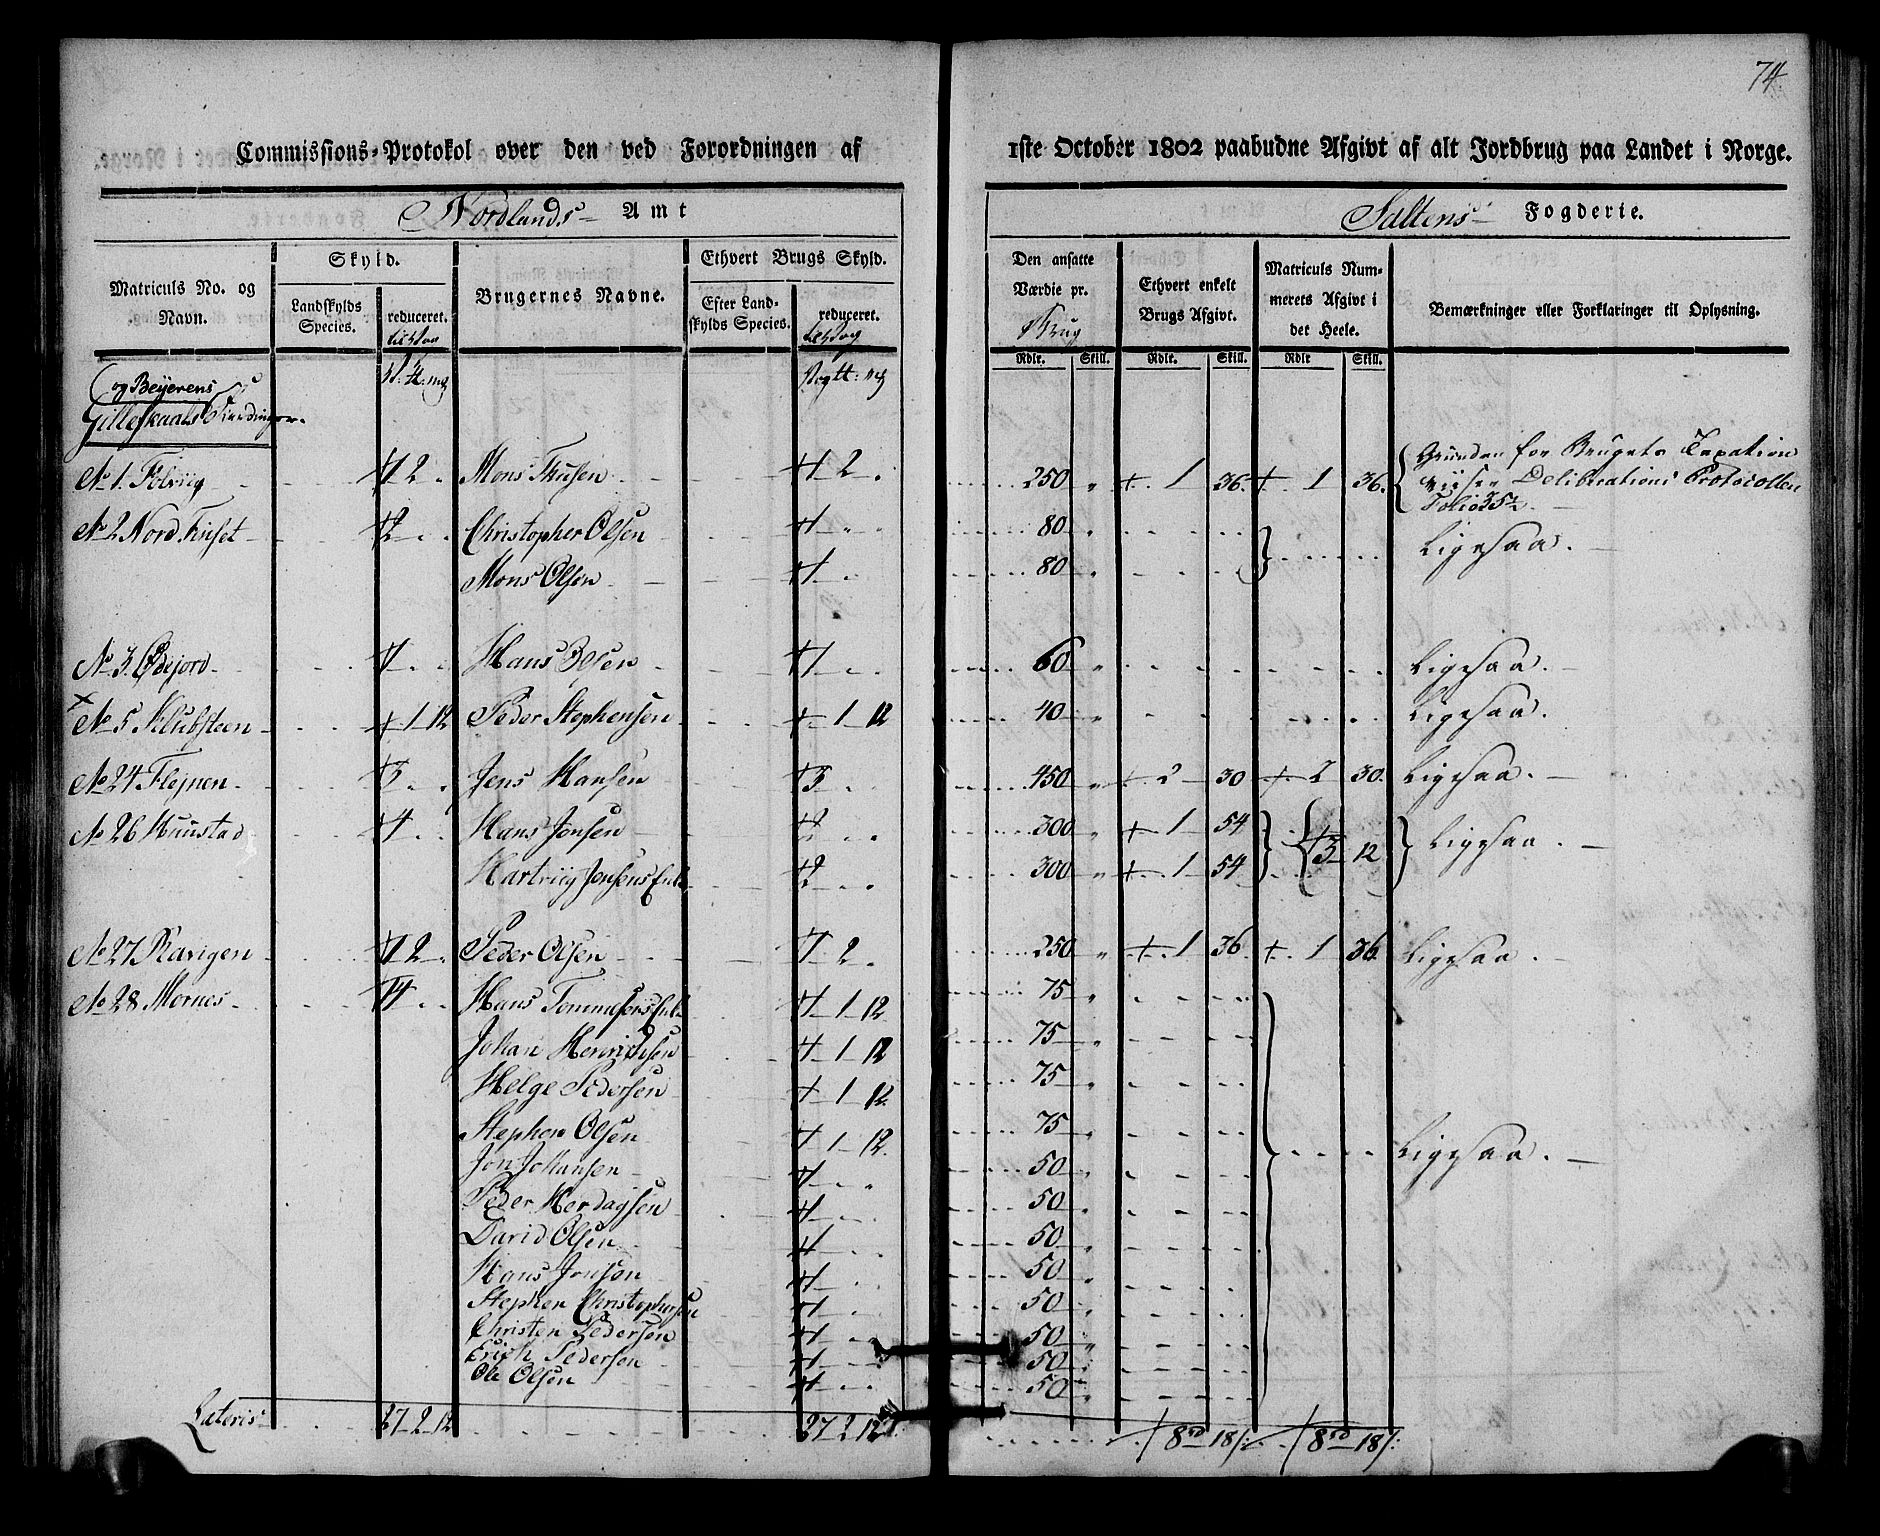 74
Commissions-Protokol over den ved Forordningen af 1ste October 1802 paabudne Afgivt af alt Jordbrug paa Landet i Norge.
Nordlands Amt Saltens Fogderie.
Matriculs No. og Navn.
Skyld.
Landskylds Species.
reduceret.
Brugernes Navne.
Ethvert Brugs Skyld.
Efter Landskylds Species.
reduceret.
Den ansatte Værdie pr. Brug
Ethvert enkelt Brugs Afgivt.
Matriculs Nummerets Afgivt i det Heele.
Bemærkninger eller Forklaringer til Oplysning.
Rdlr. Skill. Rdlr. Skill. Rdlr Skill.
og Beijerens
Gilleskaals Tiendinger.
No 1. Folviig 1 2 . Mons Thusen 1 2 . 250 " 1 36. 1 36. Grunden for Brugets Taxation
viiser Deliberations Protocollen
Folio 352
No 2 Nord Finset 2 . . Christopher Olsen 1 " " 80 " Ligesaa.
Mons Olsen 1 . . 80 "
No 3. Ødejord 1 . . Hans Olsen 1 . . 60 " Ligesaa.
No 5 Klubsteen 1 12 Peder Stephensen 1 12 40 " Ligesaa.
No 24 Flejnen 3 . . Jens Hansen 3 . . 450 " 2 30 2 30. Ligesaa.
No 26 Huustad 4 . . Hans Jonsen 2 . . 300 " 1 54 3 12 Ligesaa.
Hartviig Jensens Enke 2 . . 300 " 1 54
No 27 Ravigen 1 2 . Peder Olsen 1 2 . 250 " 1 36 1 36 Ligesaa.
No 28 Mornes 14 . . Hans Tommesens Enke 1 1 12 75 "
Johan Henrichsen 1 1 12 75 "
Helge Pedersen 1 1 12 75 "
Stephen Olsen 1 1 12. 75 " Ligesaa.
Jon Johansen 1 . . 50 "
Peder Herdagsen 1 . . 50 "
David Olsen 1 . . 50 "
Hans Jonsen 1 . . 50 "
Stephen Christophersen 1 . . 50 "
Christen Pedersen 1 . . 50 "
Erich Pedersen 1 . . 50 "
Ole Olsen 1 . . 50 "
Lateris 27 2 12 27 2 12 8 rd 18 s: 8 rd 18 s: